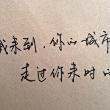 我来到,你的城市
走过你来时的